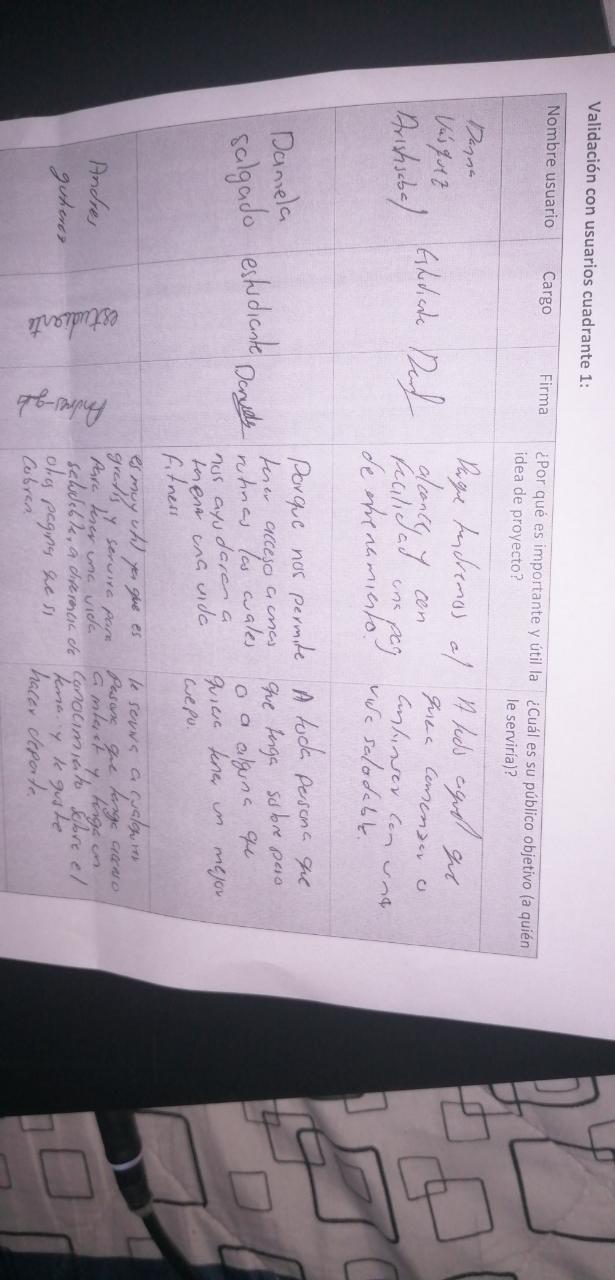 Validación con usuarios cuadrante 1:
Nombre usuario
Cargo
Firma
¿Por qué es importante y útil la
idea de proyecto?
¿Cuál es su público objetivo (a quién
le serviría)?
Danna
Vásquez
Aristizabal
Estudiante
Porque tendremos al
alcance y con
facilidad una pag
de entrenamiento.
A todo aquel que
quiera comenzar o
continuar con una
vida saludable.
Daniela
salgado
estudiante
Daniela
Porque nos permite
tener acceso a unas
rutinas las cuales
nos ayudaran a
tener una vida
fitness
A toda persona que
que tenga sobre peso
o a alguna que
quiera tener un mejor
cuerpo.
Andres
gutierrez
estudiante
Andres-gt
es muy util ya que es
gratis y serviria para
Para tener una vida
saludable, a diferencia de
otras pagina que si
Cobran
le serviria a cualquier
persona que tenga acceso
a internet y tenga un
conocimiento sobre el
tema y le guste
hacer deporte.